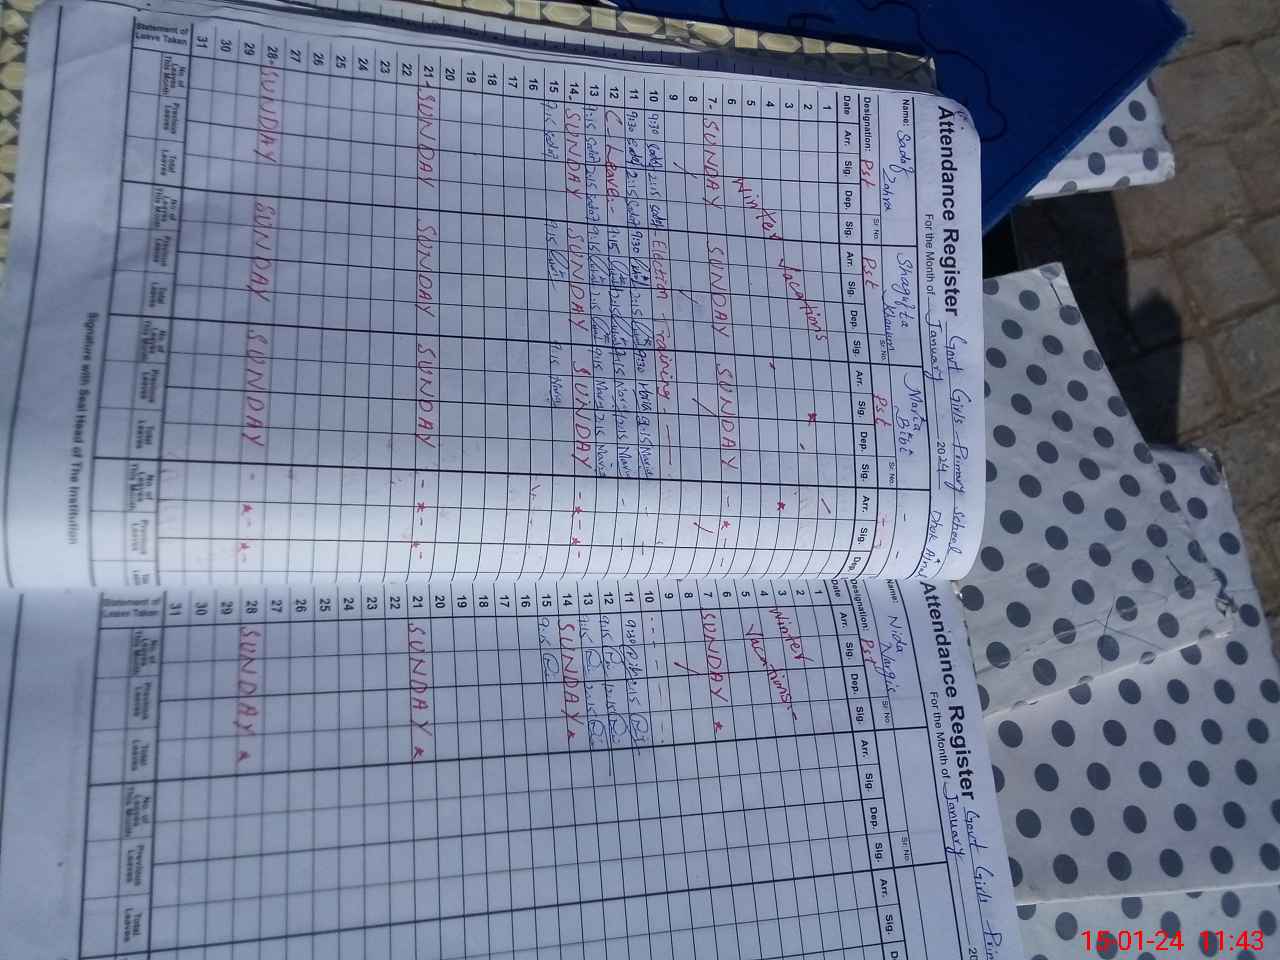 Attendance Register Govt Girls Primary School
For the Month of January 2024 Dhok
Name: Sadaf Zahra Sr. No. Shagufta Khanum Sr. No. Maria Bibi Sr. No.
Designation: Pst Pst Pst
Date Arr. Sig. Dep. Sig. Arr. Sig. Dep. Sig. Arr. Sig. Dep. Sig. Arr. Sig. Dep.
1
2
3
4
5
Winter Vacations
6
7 - SUNDAY SUNDAY SUNDAY
8
9
10 9:30 Sadaf 2:15 Sadaf - Election Training -
11 9:30 Sadaf 2:15 Sadaf 9:30 2:15 9:30 Maria 2:15 Maria
12 C - Leave - 9:15 2:15 9:15 Maria 12:15 Maria
13 9:15 Sadaf 2:15 Sadaf 9:15 2:15 9:15 Maria 2:15 Maria
14 - SUNDAY SUNDAY SUNDAY
15 9:15 Sadaf 9:15 9:15 Maria
16
17
18
19
20
21 - SUNDAY SUNDAY SUNDAY
22
23
24
25
26
27
28 - SUNDAY SUNDAY SUNDAY
29
30
31
Statement of Leave Taken No. of Leaves This Month Previous Leaves Total Leaves No. of Leaves This Month Previous Leaves Total Leaves No. of Leaves This Month Previous Leaves Total Leaves No. of Leaves This Month Previous Leaves
Signature with Seal Head of The Institution
Attendance Register Govt Girls
For the Month of January 20
Name: Nida Nargis Sr. No. Sr. No.
Designation: Pst
Date Arr. Sig. Dep. Sig. Arr. Sig. Dep. Sig. Arr. Sig.
1
2
3
4
5
Winter Vacations -
6
7 SUNDAY
8
9
10
11 9:30 2:15
12 9:15 12:15
13 9:15 2:15
14 SUNDAY
15 9:15
16
17
18
19
20
21 SUNDAY
22
23
24
25
26
27
28 SUNDAY
29
30
31
Statement of Leave Taken No. of Leaves This Month Previous Leaves Total Leaves No. of Leaves This Month Previous Leaves Total Leaves
15-01-24 11:43